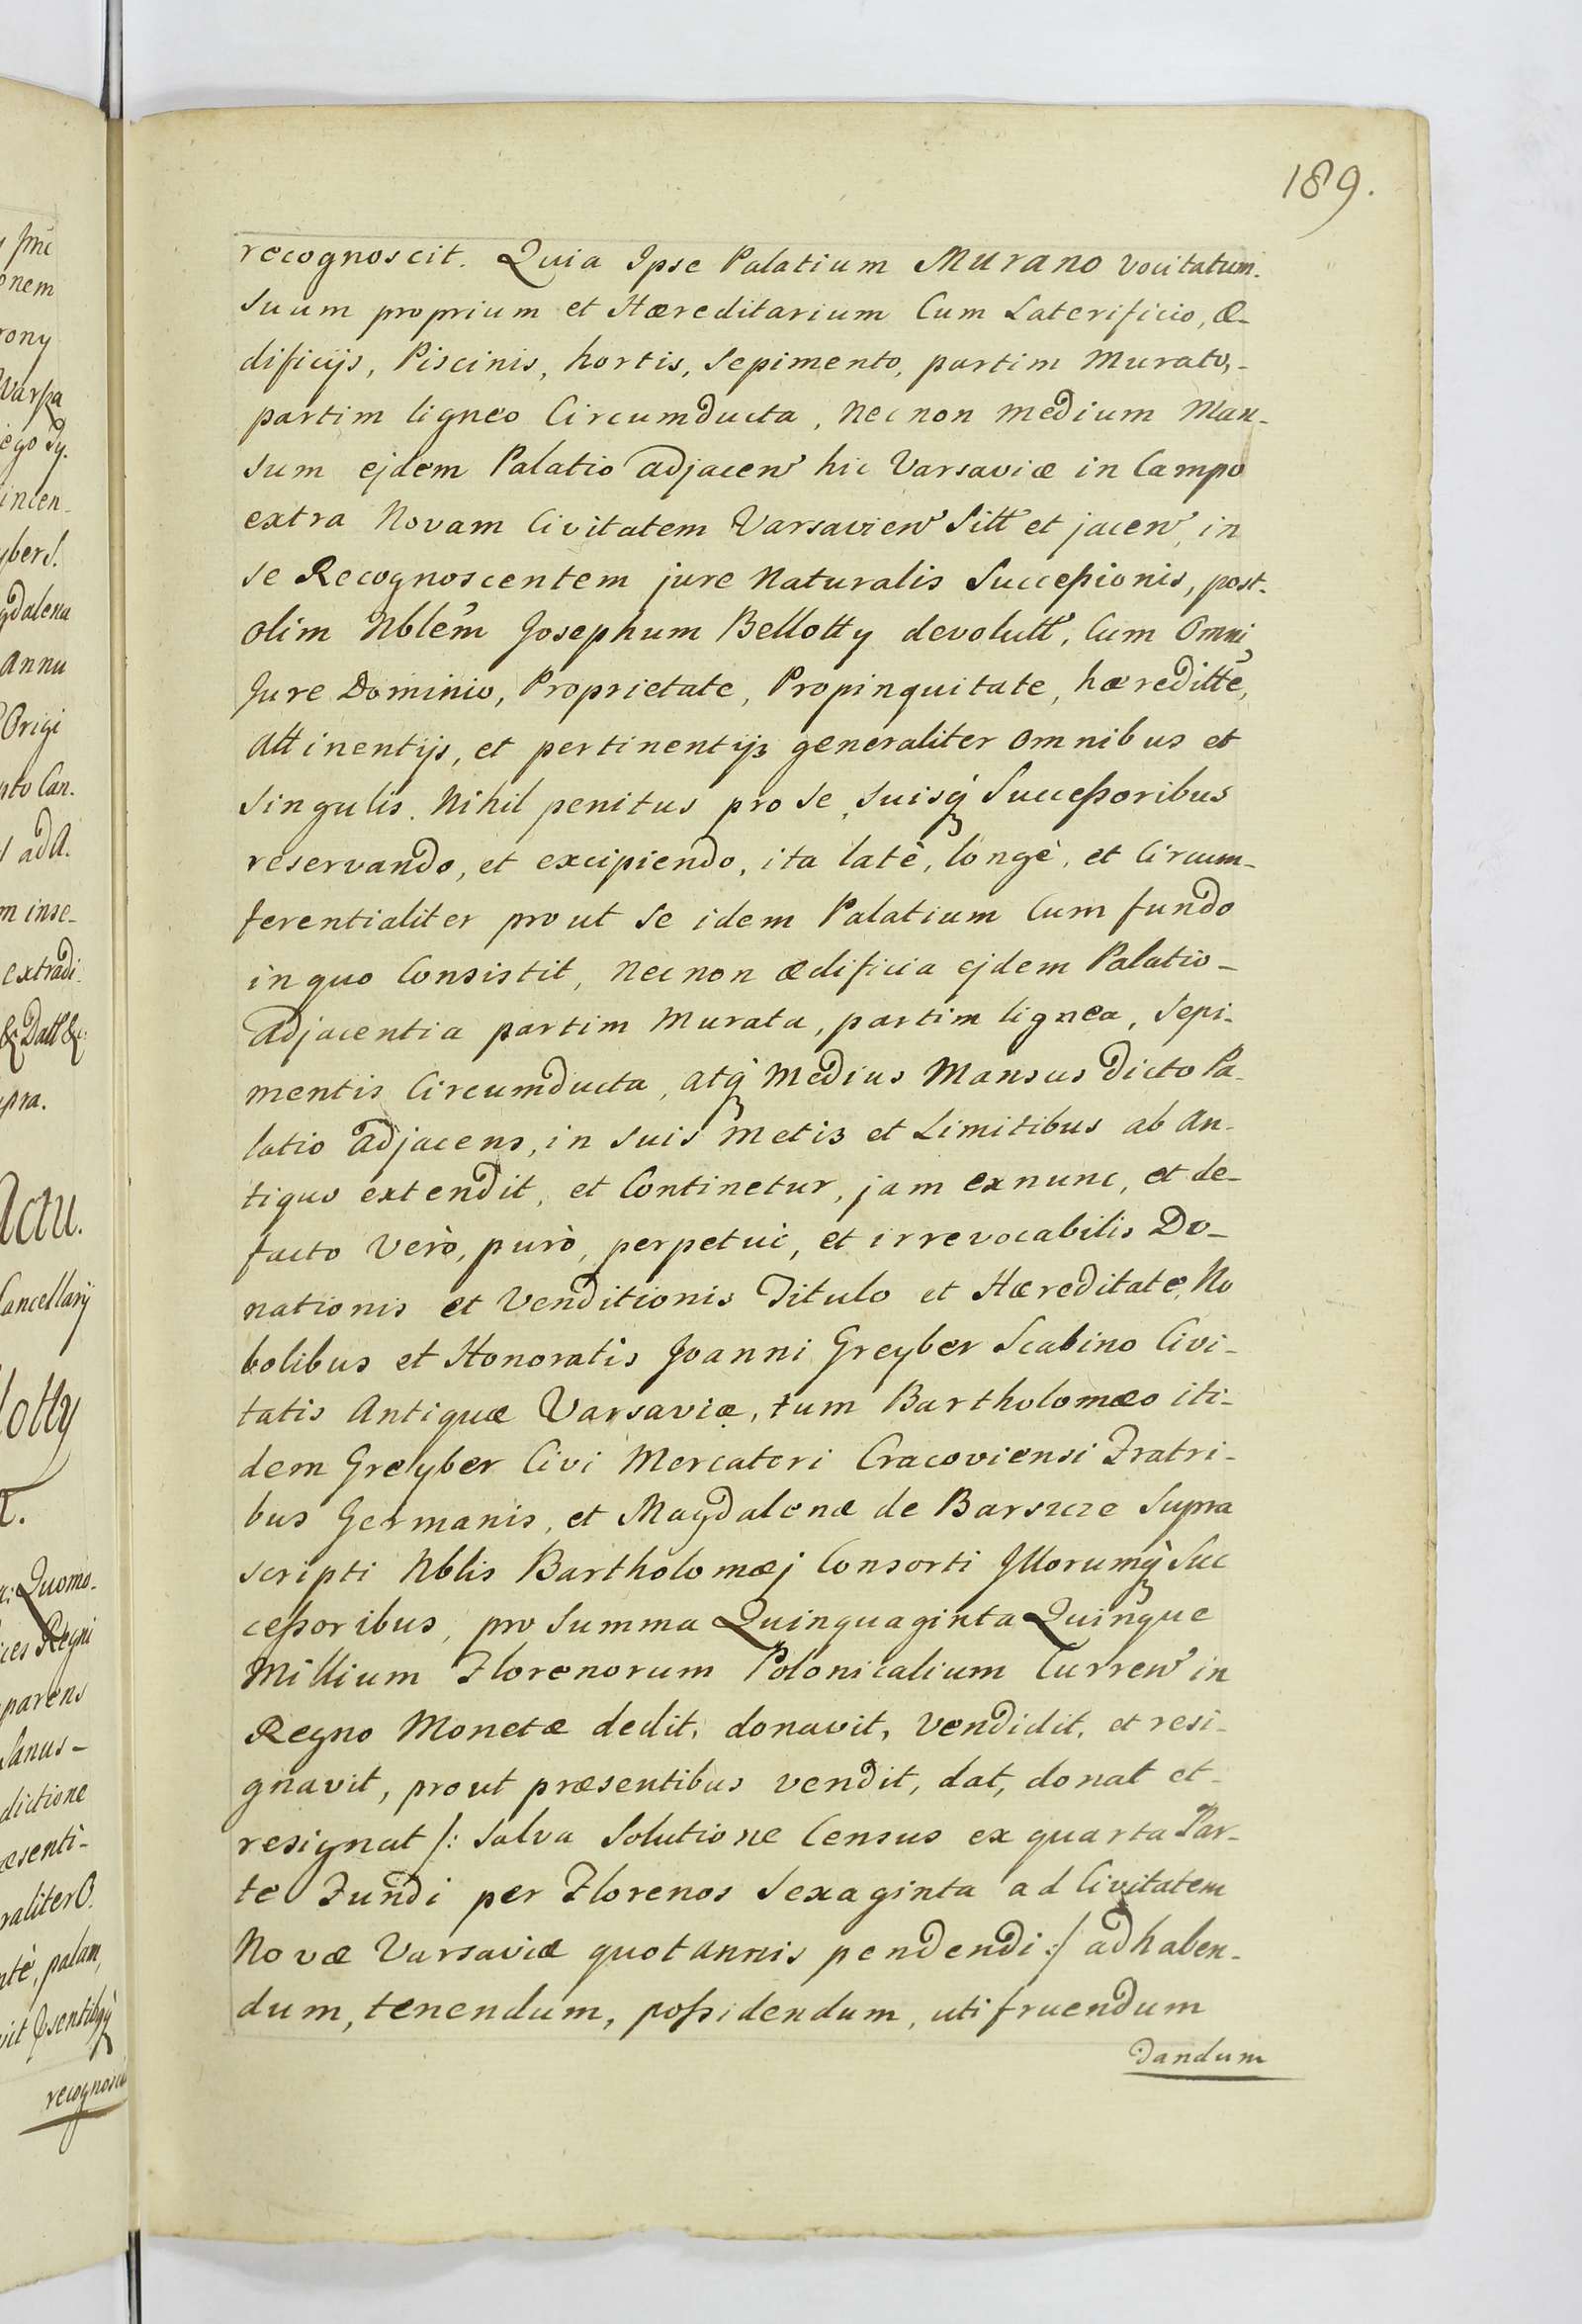 189.
recognoscit. Quia Ipse Palatium Murano vocitatum
suum proprium et Hæreditarium Cum Laterificio, æ-
dificijs, Piscinis, hortis, sepimento, partim Murato,-
partim ligneo Circumducta, Nec non medium Man-
sum ejdem Palatio adjacen hic Varsaviæ in Campo
extra Novam Civitatem Varsavien Sitt et jacen, in
se Recognoscentem jure Naturalis Succeßionis, post-
olim Nblem Josephum Bellotty devolutt, Cum Omni
Jure Dominio, Proprietate, Propinquitate, hæreditte,
Attinentijs, et pertinentijs generaliter omnibus et
singulis. Nihil penitus pro se, suisq Succeßoribus
reservando, et excipiendo, ita latè, longè, et Circum-
ferentialiter prout se idem Palatium Cum fundo
in quo Consistit, Nec non ædificia ejdem Palatio-
adjacentia partim Murata, partim lignea, Sepi-
mentis Circumducta, atq Medius Mansus Dicto Pa-
latio adjacens, in suis metis et Limitibus ab an-
tiquo extendit, et Continetur, jam ex nunc, et de-
facto verò, purò, perpetui, et irrevocabilis Do-
nationis et Venditionis Titulo et Hæreditate, No
bolibus et Honoratis Joanni Greyber Scabino Civi-
tatis Antiquæ Varsaviæ, tum Bartholomæo iti-
dem Greyber Civi Mercatori Cracoviensi Fratri-
bus Germanis, et Magdalenæ de Barszcze Supra
scripti Nblis Bartholomæj Consorti Illorumq Suc
ceßoribus, pro Summa Quinquaginta Quinque
Millium Florenorum Polonicalium Curren in
Regno Monetæ dedit, donavit, vendidit, et resi-
gnavit, prout præsentibus vendit, dat, donat et-
resignat /: salva Solutione Census ex quarta Par-
te Fundi per Florenos Sexaginta ad Civitatem
Novæ Varsaviæ quotannis pendendi :/ ad haben-
dum, tenendum, poßidendum, uti fruendum
dandum
onem
rony
ego Dy.
incen-
ybers.
gdalena
Annu
Origi
nto Can.
ad A.
m inse-
extradi.
& Datt &c
pra.
Actu.
Cancellarij
lotty
Quomo-
ices Regni
parens
Sanus-
dictione
æsenti-
raliter O.
ntè, palam,
recognosci